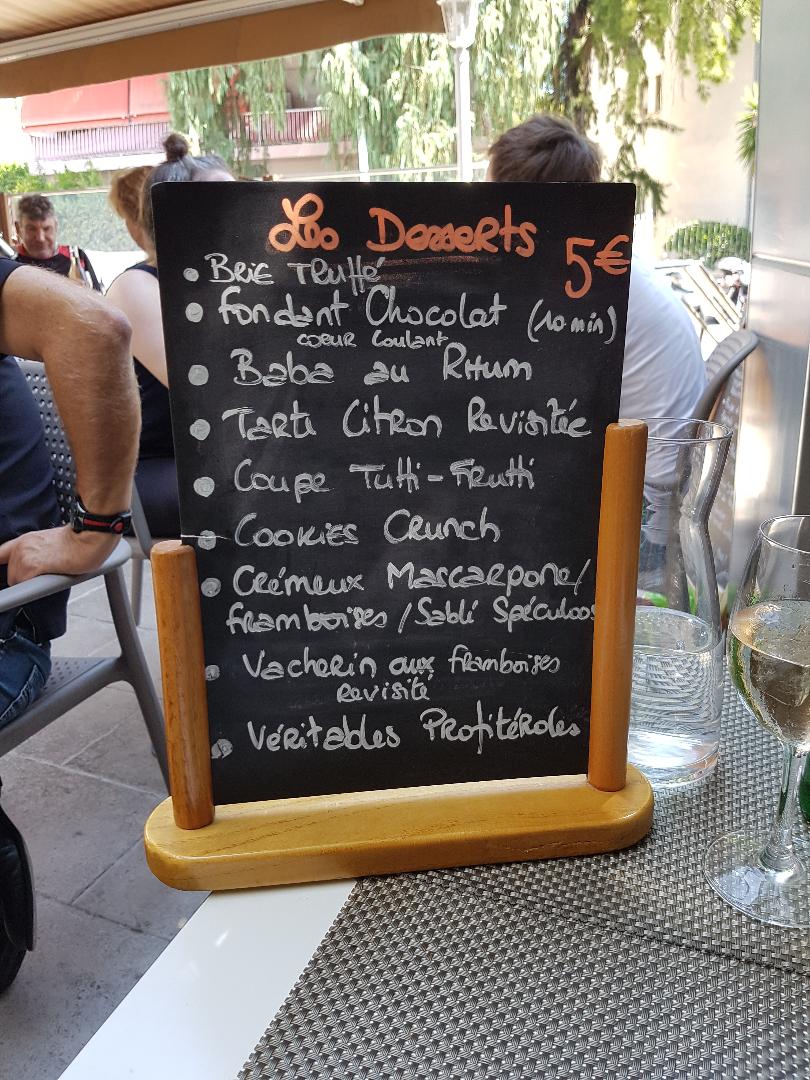 Les Desserts
5€
• Brie Truffé
• Fondant Chocolat (10 min)
coeur coulant
• Baba au Rhum
• Tarte Citron Revisitée
• Coupe Tutti-Frutti
• Cookies Crunch
• Crémeux Mascarpone/
framboises / Sablé Spéculoos
• Vacherin aux framboises
revisité
• Véritables Profitéroles